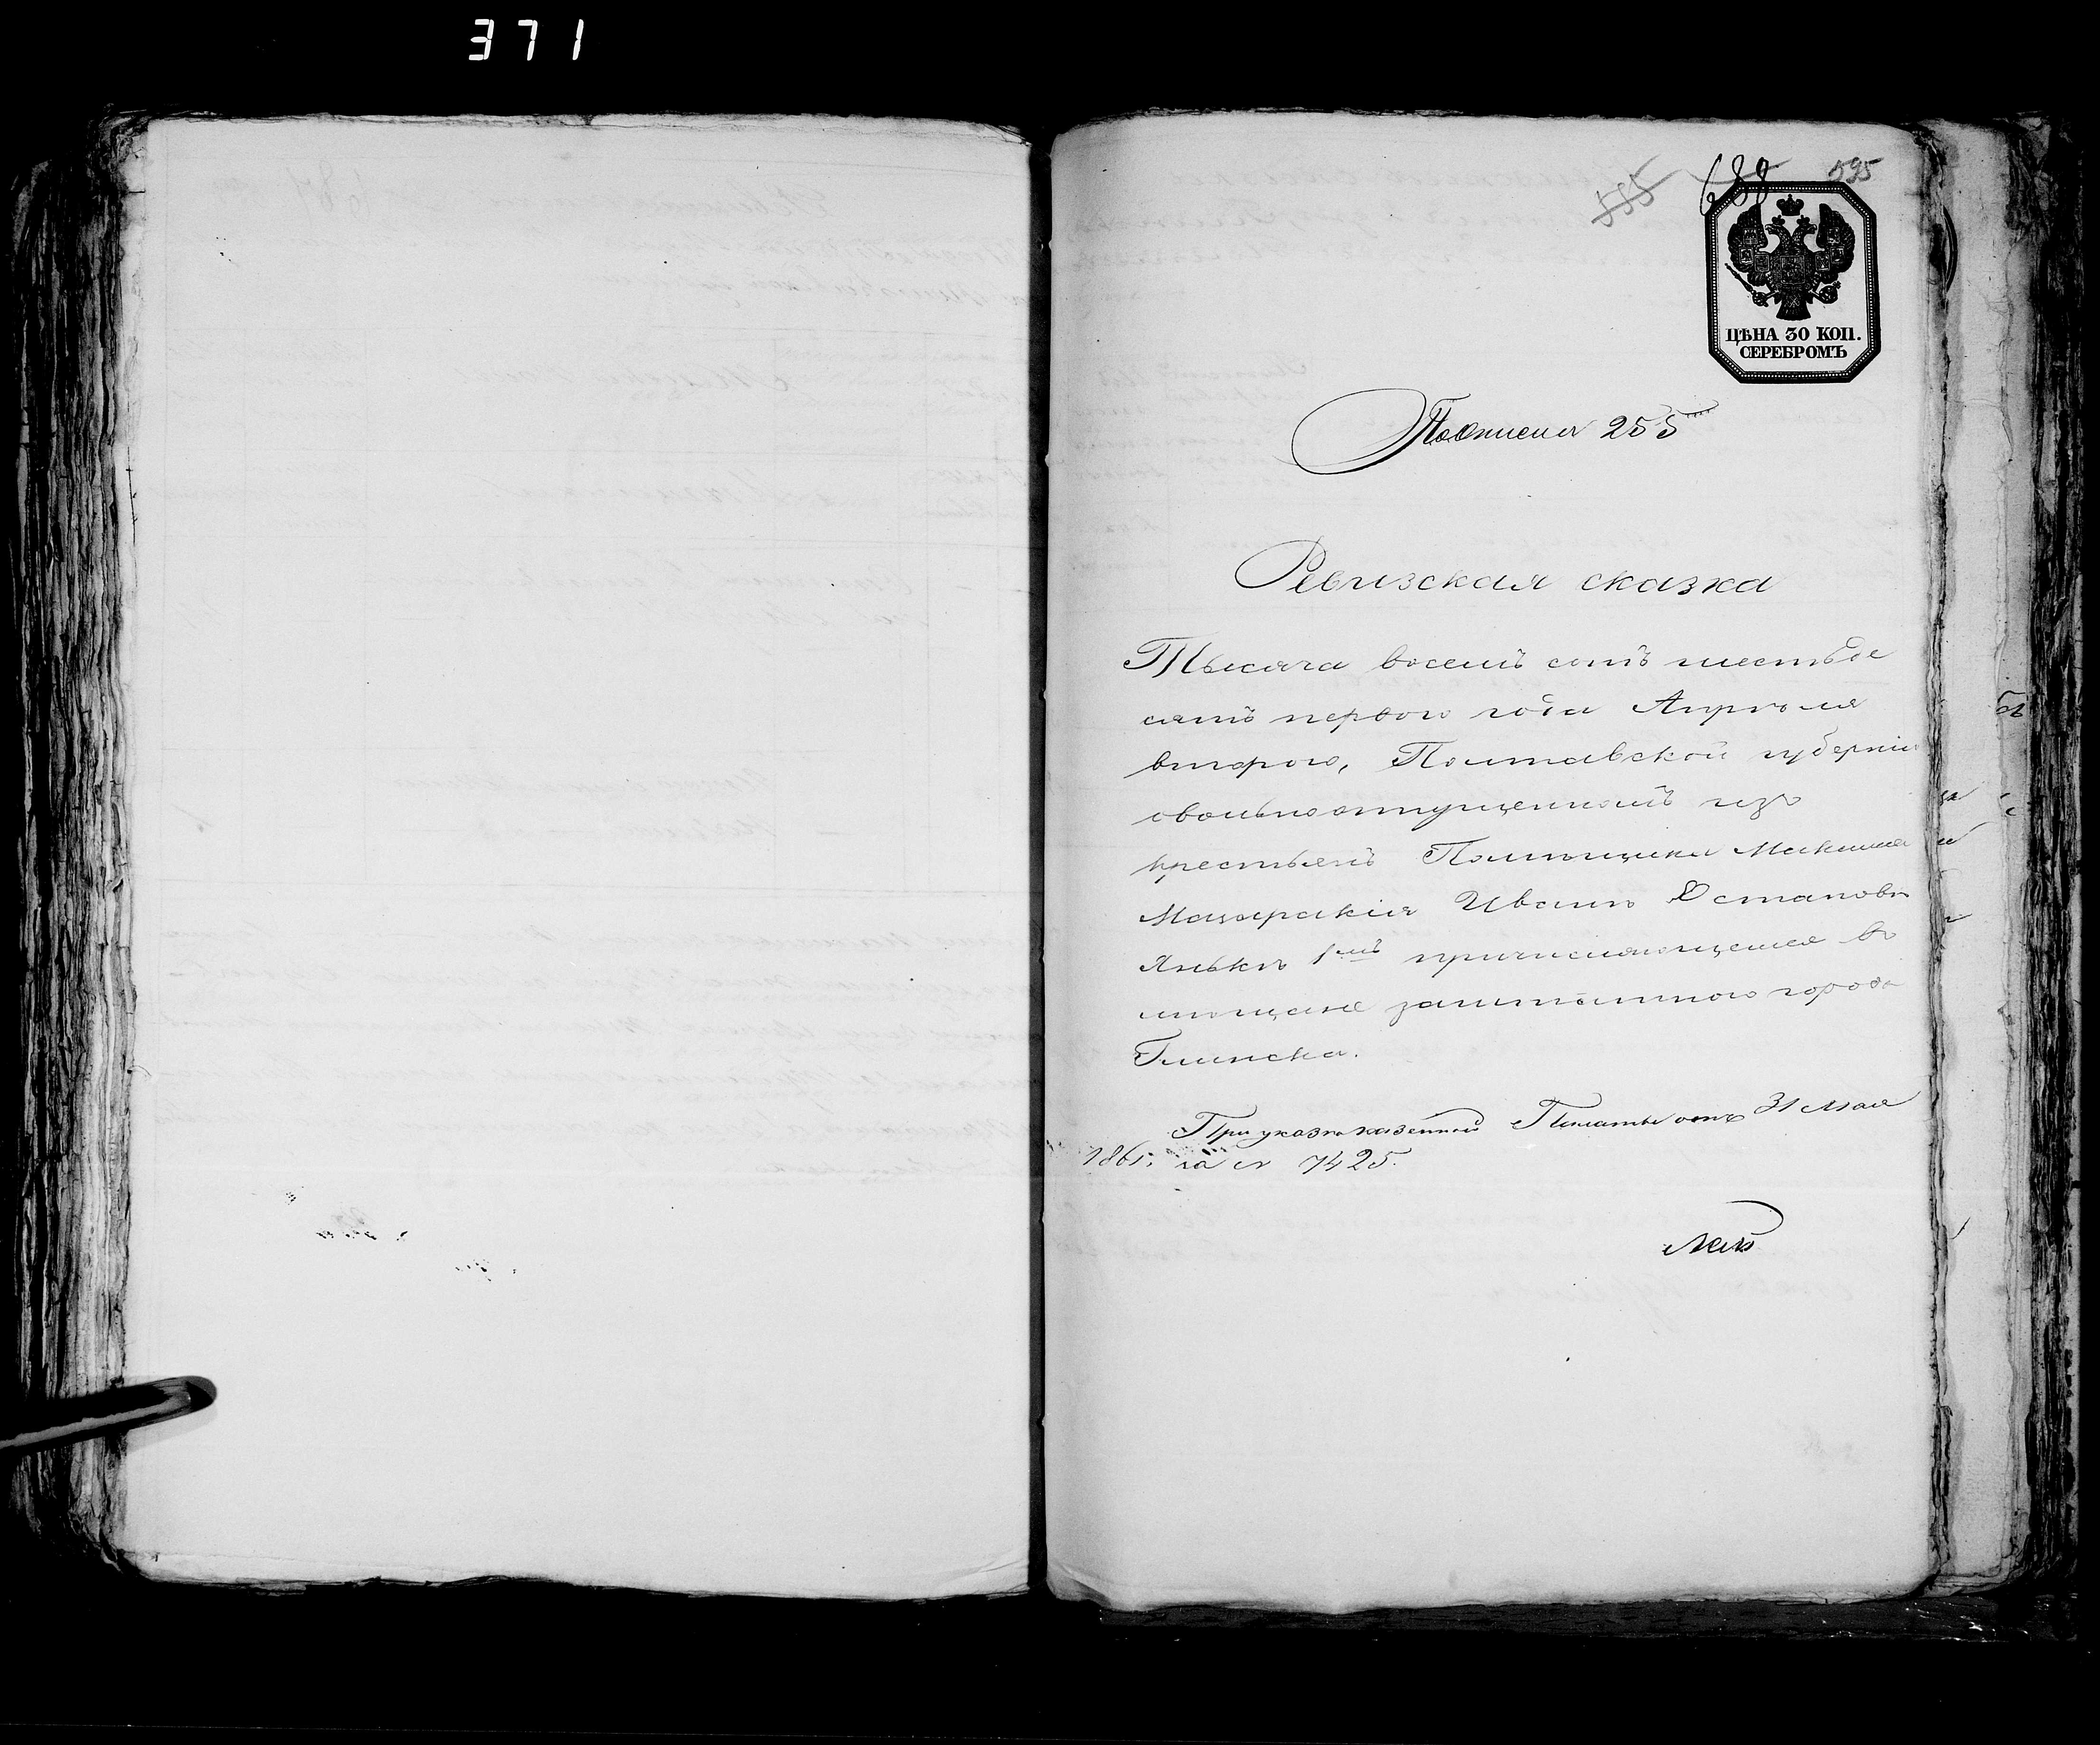 371
595
688
535
ЦѢНА 30 КОП.
СЕРЕБРОМЪ
255
Ревизская сказка
Тысяча восемъ сотъ шестьде
сятъ первого года Апрѣля
второго, Полтавской губерніи
овольноотпущенномъ изъ
крестьянъ Помѣщика Максима
Мацаракія Иванѣ Остаповѣ
Янькѣ 1мъ причисляющемся въ
мѣщане заштатного города
Глинска.
При указѣ казенной Палаты отъ 31 Мая
1861 за № 7425.